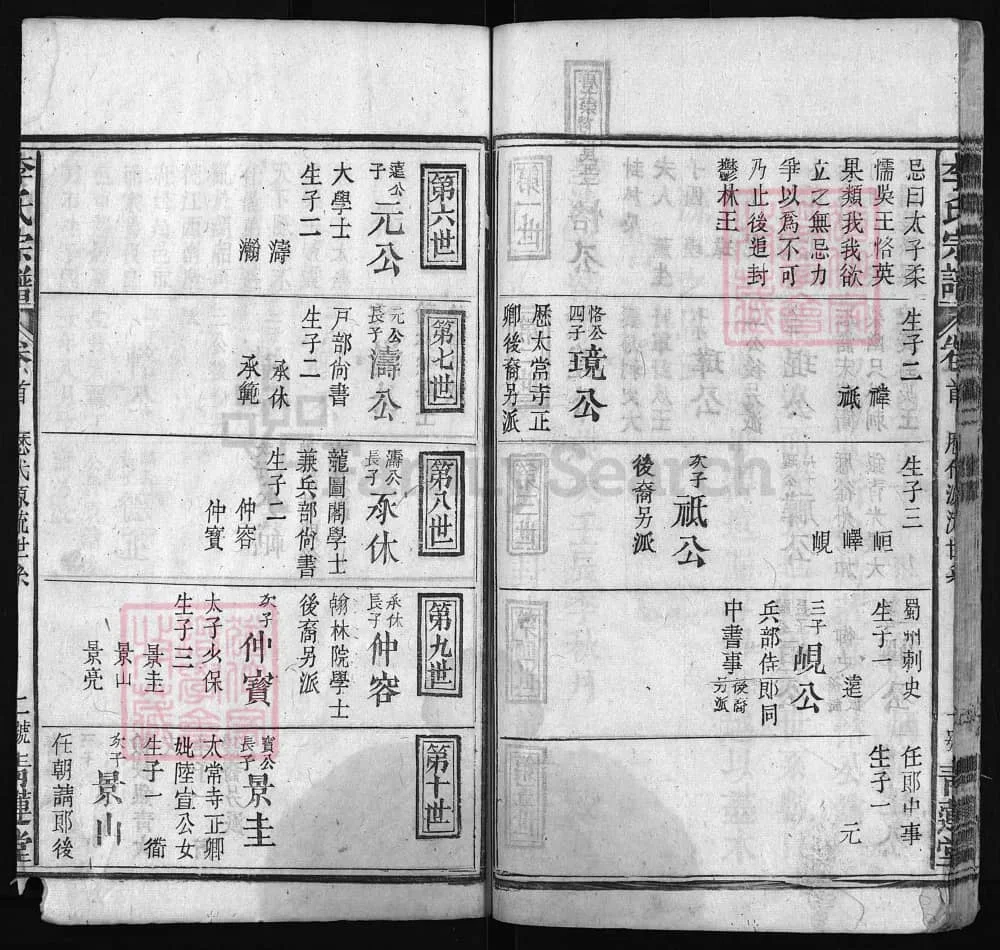 忌曰太子柔
懦吳王恪英
果類我我欲
立之無忌力
爭以爲不可
乃止後追封
鬱林王
生子二
禕
祗
恪公
四子
璄公
歷太常寺正
卿後裔另派
生子三
峘
嶧
峴
次子
祗公
後裔另派
蜀州刺史
生子一
薳
三子
峴公
兵部侍郎同
中書事
後裔
另派
任郎中事
生子一
元
李氏宗譜
卷首
青蓮堂
第六世
薳公
子
元公
大學士
生子二
濤
瀚
第七世
元公
長子
濤公
戸部尙書
生子二
承休
承範
第八世
濤公
長子
承休
龍圖閣學士
兼兵部尙書
生子二
仲容
仲寶
第九世
承休
長子
仲容
翰林院學士
後裔另派
次子
仲寶
太子少保
生子三
景圭
景山
景亮
第十世
寶公
長子
景圭
太常寺正卿
妣陸宣公女
生子一
衜
次子
景山
任朝請郎後
李氏宗譜
卷首
歷代源流世系
二號
青蓮堂
FamilySearch